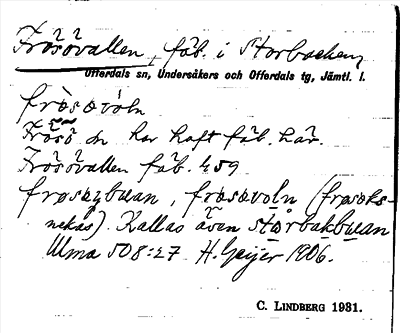 Frösövallen, fäb. i Storbacken,
Offerdals sn, Undersåkers och Offerdals tg, Jämtl. l.
frösövoln
Frösö sn har haft fäb. här.
Frösövallen fäb. 459
frøsøybuan, frøsøvoln (frøsøks-
nekås). Kallas även størbakbuan
Ulma 508:27 H. Geijer 1906.
C. LINDBERG 1931.